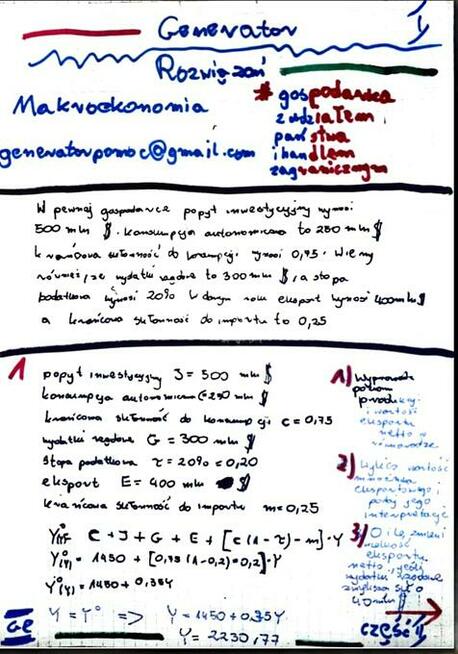 Generator I
Rozwiązań
Makroekonomia
# gospodarka
z udziałem
państwa
i handlem
zagranicznym
generatorpomoc@gmail.com
W pewnej gospodarce popyt inwestycyjny wynosi
500 mln $. konsumpcja autonomiczna to 250 mln $
krańcowa skłonność do konsumpcji wynosi 0,75. Wiemy
również, że wydatki rządowe to 300 mln $, a stopa
podatkowa wynosi 20% W danym roku eksport wynosi 400 mln $
a krańcowa skłonność do importu to 0,25
1 popyt inwestycyjny J = 500 mln $
konsumpcja autonomiczna C = 250 mln $
krańcowa skłonność do konsumpcji c = 0,75
wydatki rządowe G = 300 mln $
stopa podatkowa τ = 20% = 0,20
eksport E = 400 mln $
krańcowa skłonność do importu m = 0,25
C + J + G + E + [c (1 - τ) - m] · Y
= 1450 + 0,35Y
Y = Yᴰ => Y = 1450 + 0,35Y
Y = 2230,77
1) Wyprowadź
poziom
produkcji
i wartość
eksportu
netto w
równowadze
2) Wylicz wartość
mnożnika
eksportowego i
podaj jego
interpretację
3) O ile zmieni
wielkość
eksportu
netto, jeśli
wydatki rządowe
mln $
GR
CZĘŚĆ II